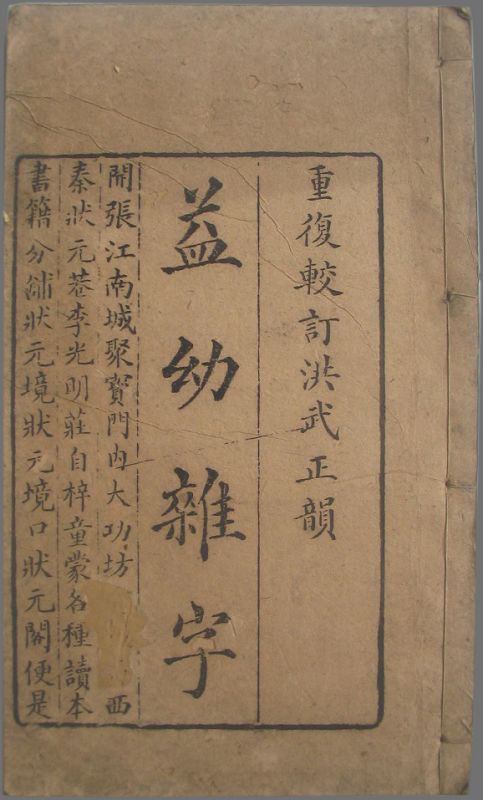 重復較訂洪武正韻
益幼雜字
開張江南城聚寳門內大功坊 西
秦狀元巷李光明莊自梓童蒙各種讀本
書籍分鋪狀元境狀元境口狀元閣便是